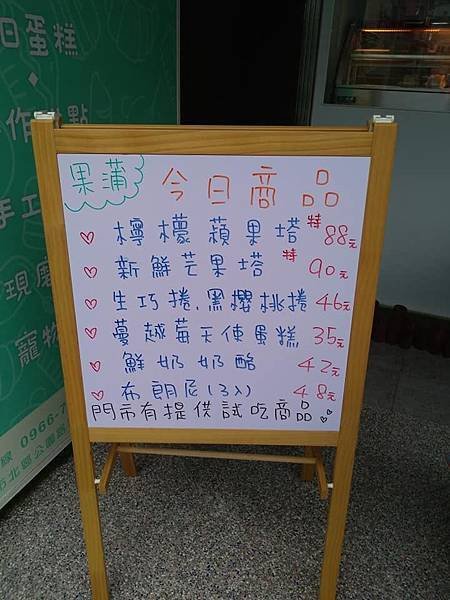 日蛋糕
作甜點
手工
現磨
寵物
線 0966-7
市北區公園
果蒲 今日商品
檸檬蘋果塔 特88元
新鮮芒果塔 特90元
生巧捲、黑櫻桃捲 46元
蔓越莓天使蛋糕 35元
鮮奶奶酪 42元
布朗尼(3入) 48元
門市有提供試吃商品